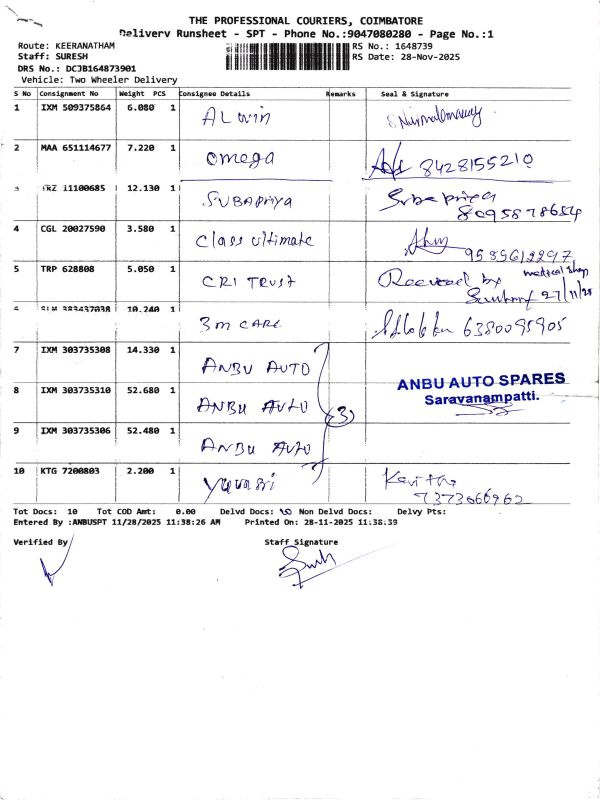 THE PROFESSIONAL COURIERS, COIMBATORE
Delivery Runsheet - SPT - Phone No.:9047080280 - Page No.:1
Route: KEERANATHAM
RS No.: 1648739
Staff: SURESH
RS Date: 28-Nov-2025
DRS No.: DCJB164873901
Vehicle: Two Wheeler Delivery
S No Consignment No Weight PCS Consignee Details Remarks Seal & Signature
1 IXM 509375864 6.080 1 ALwin
2 MAA 651114677 7.220 1 Omega 8428155210
3 TRZ 11100685 12.130 1 SUBAPRIYA Subapriya
4 CGL 20027590 3.580 1 Class ultimate 9585612297
5 TRP 628808 5.050 1 CRI TRUST Received by medical shop
27/11/25
6 SLM 383437038 10.240 1 3M CARE 6380095905
7 IXM 303735308 14.330 1 ANBU AUTO
8 IXM 303735310 52.680 1 ANBU AUTO (3) ANBU AUTO SPARES
Saravanampatti.
9 IXM 303735306 52.480 1 ANBU AUTO
10 KTG 7200803 2.200 1 Yuvasri Kavitha
7373666962
Tot Docs: 10 Tot COD Amt: 0.00 Delvd Docs: 10 Non Delvd Docs: Delvy Pts:
Entered By :ANBUSPT 11/28/2025 11:38:26 AM Printed On: 28-11-2025 11:38:39
Verified By Staff Signature